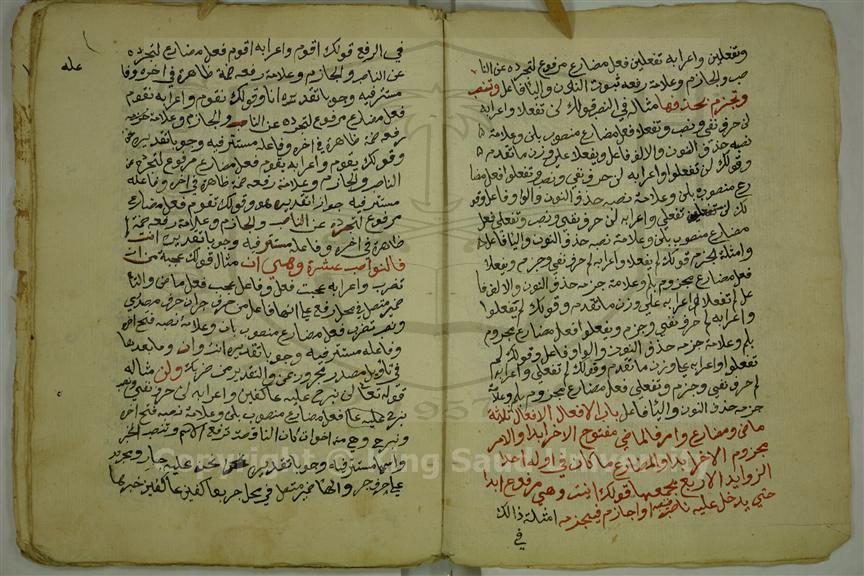 وتفعلين واعرابه تفعلين فعل مضارع مرفوع لتجرده عن النا
صب والجازم وعلامة رفعه ثبوت النون واليا فاعل وتنصب
وتجزم بحذفها مثال في النصب قولك لن تفعلا واعرابه
لن حرف نفي ونصب وتفعلا فعل مضارع منصوب بلن وعلامة
نصبه حذف النون والالف فاعل ويفعلا على وزن ما تقدم
وقولك لن تفعلوا واعرابه لن حرف نفي ونصب وتفعلوا فعل مضا
رع منصوب بلن وعلامة نصبه حذف النون والواو فاعل وقو
لك لن تفعلي واعرابه لن حرف نفي ونصب وتفعلي فعل
مضارع منصوب بلن وعلامة نصبه حذف النون واليا فاعل
وامثلة الجزم قولك لم يفعلا واعرابه لم حرف نفي وجزم ويفعلا
فعل مضارع مجزوم بلم وعلامة جزمه حذف النون والالف فا
عل لم تفعلا اعرابه على وزن ما تقدم وقولك لم يفعلوا
واعرابه لم حرف نفي وجزم ويفعلوا فعل مضارع مجزوم
بلم وعلامة جزمه حذف النون والواو فاعل وقولك لم
تفعلوا واعرابه على وزن ما تقدم وقولك لم تفعلي واعرابه
لم حرف نفي وجزم وتفعلي فعل مضارع مجزوم بلم وعلامة
جزمه حذف النون واليا فاعل باب الافعال الافعال ثلاثة
ماضي ومضارع وامر فالماضي مفتوح الاخر ابدا والامر
مجزوم الاخر ابدا والمضارع ما كان في اوله احدا
الزوايد الاربع يجمعها قولك انيت وهي مرفوع ابدا
حتي يدخل عليه ناصب فينصبه او جازم فيجزمه امثلة ذالك
في
في الرفع قولك اقوم واعرابه اقوم فعل مضارع لتجرده
عن الناصب والجازم وعلامة رفعه ضمة ظاهرة في اخره وفا
عله
مستتر فيه وجوبا تقديره انا وقولك نقوم واعرابه نقوم
فعل مضارع مرفوع لتجرده عن الناصب والجازم وعلامة
رفعه ضمة ظاهرة في اخره وفاعله مستتر فيه وجوبا تقديره نحن
وقولك يقوم واعرابه يقوم فعل مضارع مرفوع لتجرده عن
الناصب والجازم وعلامة رفعه ضمة ظاهرة في اخره وفاعله
مستتر فيه جوازا تقديره هو وقولك تقوم فعل مضارع
مرفوع لتجرده عن الناصب والجازم وعلامة رفعه ضمة
ظاهرة في اخره وفاعله مستتر فيه وجوبا تقديره انت
فالنواصب عشرة وهي ان مثال قولك عجبت من ان
تضرب واعرابه عجبت فعل وفاعل عجب فعل ماض والتا
ضمير متصل في محل رفع فاعل من حرف جر ان حرف مصدري
ونصب تضرب فعل مضارع منصوب بان وعلامة نصبه فتح اخره
وفاعله مستتر فيه وجوبا تقديره انت وان وما بعدها
في تاويل مصدر مجرور بمن والتقدير من ضربك ولن مثاله
قوله تعالى لن نبرح عليه عاكفين واعرابه لن حرف نفي ونصب
نبرح فعل مضارع منصوب بلن وعلامة نصبه فتح اخره
ونبرح من اخوات كان الناقصة ترفع الاسم وتنصب الخبر
واسمها مستتر فيه وجوبا تقديره نحن عليه جار ومجرور
على حرف جر والها ضمير متصل في محل جر بعلى عاكفين خبرها
Copyright © King Saud University
1957